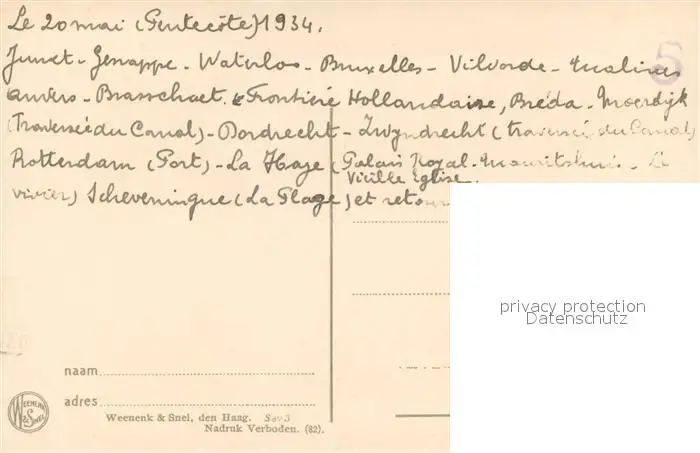 Le 20 mai (Pentecôte) 1934.
Jumet - Genappe - Waterloo - Bruxelles - Vilvorde - Malines
Anvers - Brasschaet. Frontière Hollandaise, Bréda - Moerdijk
(Traversée du Canal) - Dordrecht - Zwyndrecht (traversée du Canal)
Rotterdam (Port) - La Haye (Palais royal - Mauritshuis - Le
Vieille église.
vivier) Scheveningue (La Plage) et retour
5
privacy protection
Datenschutz
naam
adres
WEENENK & SNEL
Weenenk & Snel, den Haag.
Nadruk Verboden. (82).